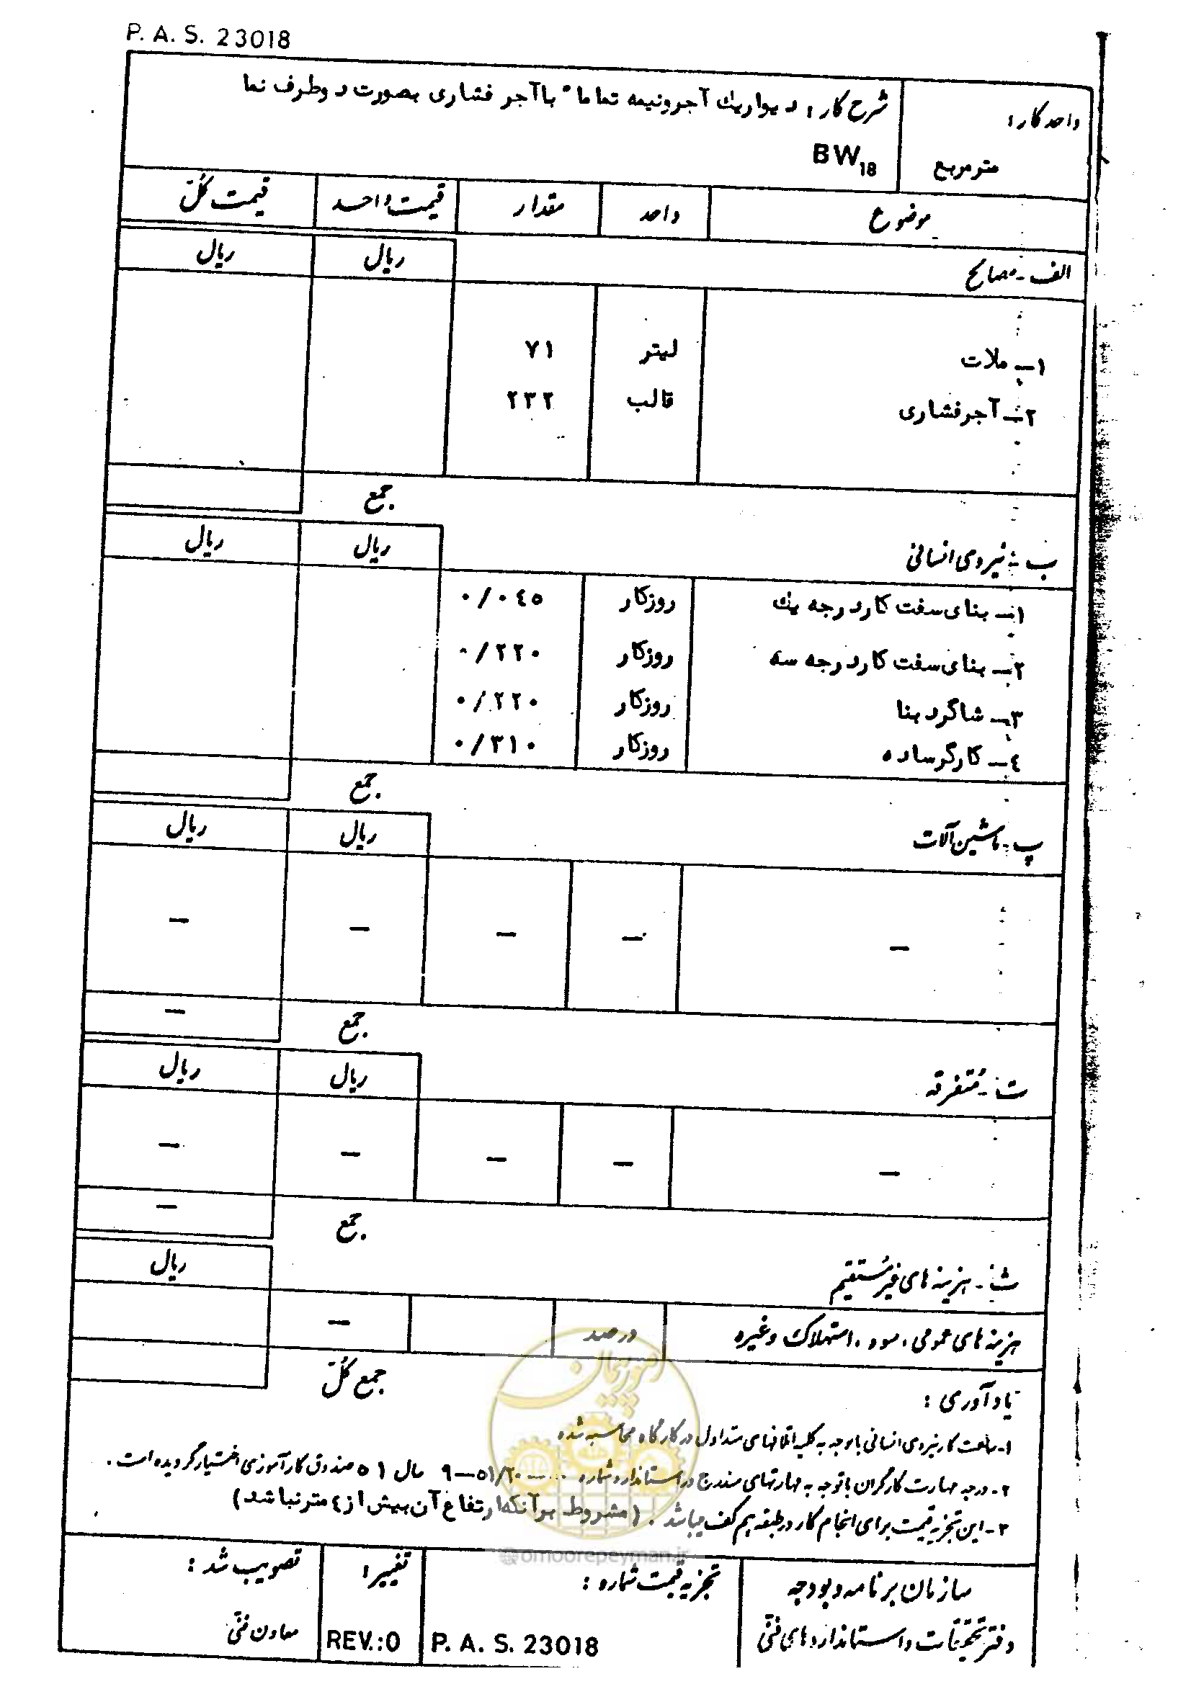 P. A. S. 23018
واحد کار :
مترمربع
شرح کار : دیوار یك آجرونیمه تماما" با آجر فشاری بصورت دوطرف نما
BW18
موضوع واحد مقدار قیمت واحد قیمت کل
الف - مصالح ریال ریال
۱- ملات لیتر ۷۱
۲- آجرفشاری قالب ۲۳۲
جمع
ب - نیروی انسانی ریال ریال
۱- بنای سفت کار درجه یك روزکار ۰/۰٤٥
۲- بنای سفت کار درجه سه روزکار ۰/۲۲۰
۳- شاگرد بنا روزکار ۰/۲۲۰
٤- کارگرساده روزکار ۰/۳۱۰
جمع
پ - ماشین آلات ریال ریال
— — — — —
جمع —
ت - متفرقه ریال ریال
— — — — —
جمع —
ث - هزینه های غیرمستقیم ریال
هزینه های عمومی ، سود ، استهلاک وغیره درصد —
جمع کل
یادآوری :
۱- ساعت کار نیروی انسانی باتوجه به کلیه اتلافهای متداول در کارگاه محاسبه شده
۲- درجه مهارت کارگران باتوجه به مهارتهای مندرج در استاندارد شماره ۹-۵۱/۲۰ سال ۵۱ صندوق کارآموزی اختیار گردیده است .
۳- این تجزیه قیمت برای انجام کار در طبقه هم کف میباشد . (مشروط بر آنکه ارتفاع آن بیش از ٤ مترنباشد )
اصور پیمان
@omoorepeyman.ir
سازمان برنامه وبودجه
دفتر تحقیقات واستانداردهای فنی
تجزیه قیمت شماره :
P. A. S. 23018
تغییر :
REV.:0
تصویب شد :
معاون فنی